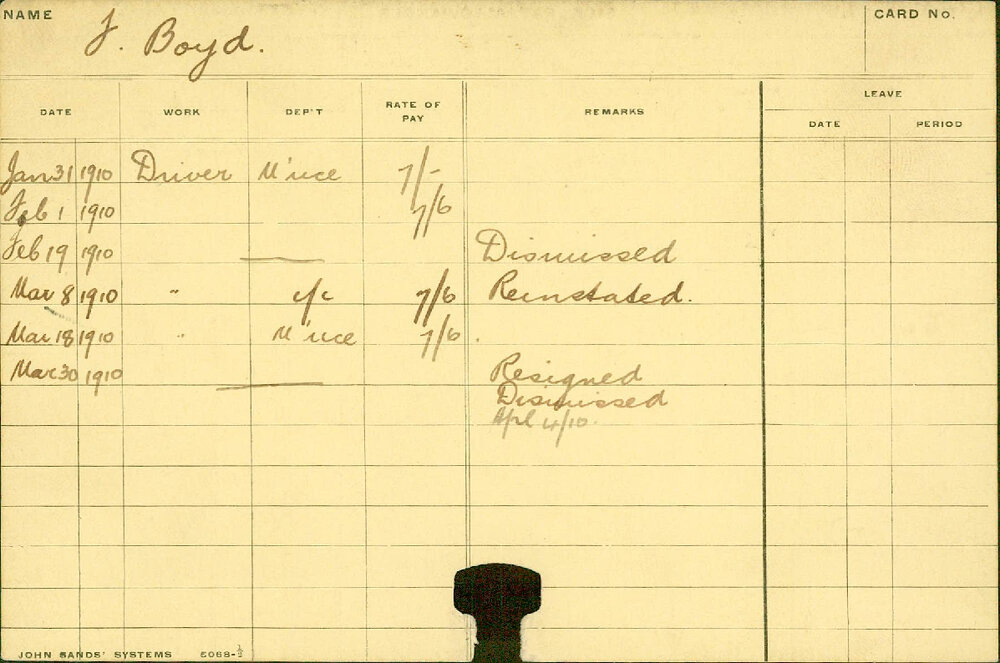 NAME J. Boyd. CARD No.
LEAVE
DATE WORK DEP'T RATE OF PAY REMARKS DATE PERIOD
Jan 31 1910 Driver M'nce 7/-
Feb 1 1910 7/6
Feb 19 1910 Dismissed
Mar 8 1910 " c/c 7/6 Reinstated.
Mar 18 1910 " M'nce 7/6
Mar 30 1910 Resigned
Dismissed
Apl 4/10.
JOHN SANDS' SYSTEMS